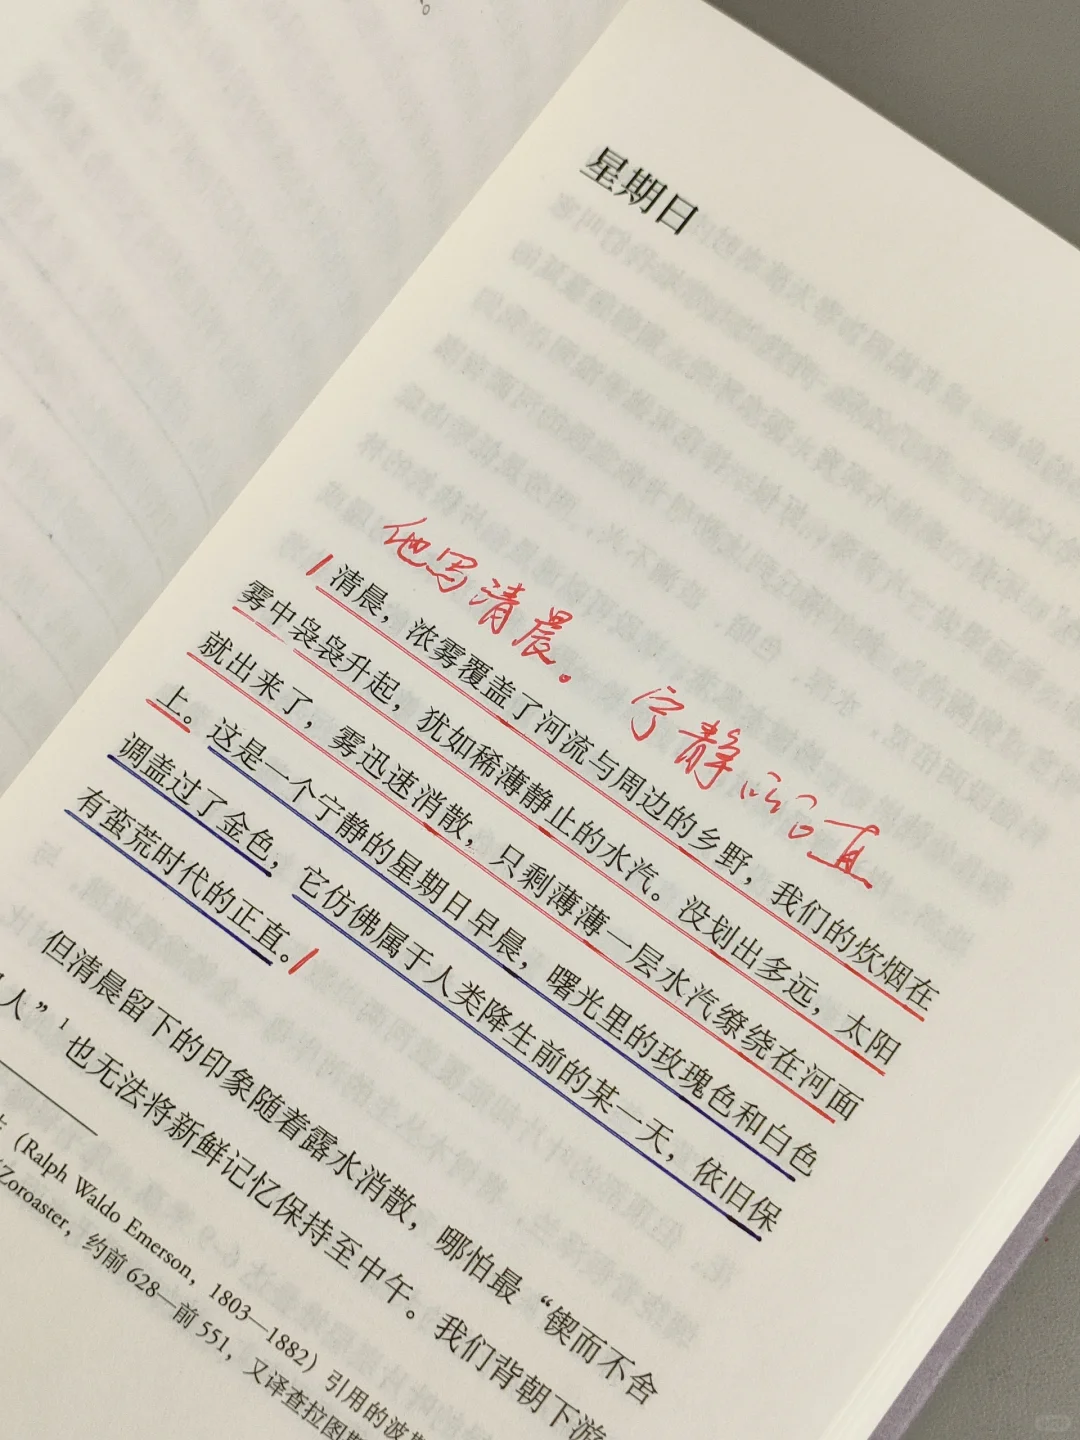 星期日
他写清晨。宁静而正直
清晨，浓雾覆盖了河流与周边的乡野，我们的炊烟在
雾中袅袅升起，犹如稀薄静止的水汽。没划出多远，太阳
就出来了，雾迅速消散，只剩薄薄一层水汽缭绕在河面
上。这是一个宁静的星期日早晨，曙光里的玫瑰色和白色
调盖过了金色，它仿佛属于人类降生前的某一天，依旧保
有蛮荒时代的正直。
但清晨留下的印象随着露水消散，哪怕最“锲而不舍
人”1也无法将新鲜记忆保持至中午。我们背朝下游
(Ralph Waldo Emerson, 1803—1882) 引用的波斯
Zoroaster, 约前 628—前 551, 又译查拉图斯